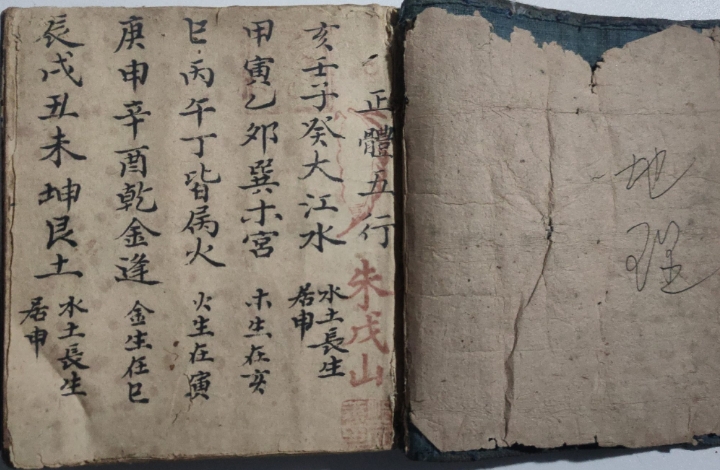 地理
正體五行
朱戊山
亥壬子癸大江水 水土長生居申
甲寅乙卯巽木宮 木生在亥
巳丙午丁皆属火 火生在寅
庚申辛酉乾金逢 金生在巳
辰戌丑未坤艮土 水土長生居申